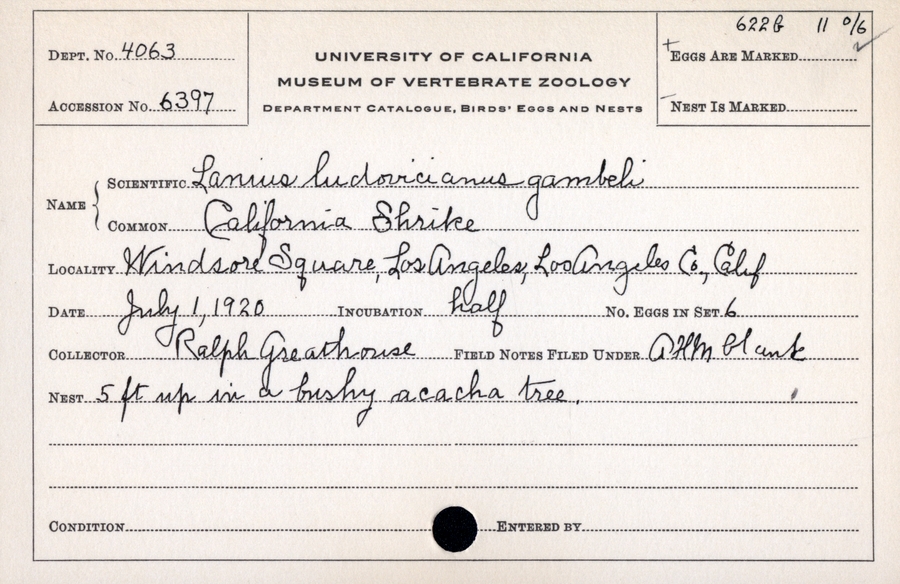 622b 11 0/6
DEPT. No. 4063
UNIVERSITY OF CALIFORNIA
+ EGGS ARE MARKED
MUSEUM OF VERTEBRATE ZOOLOGY
ACCESSION No. 6397
DEPARTMENT CATALOGUE, BIRDS' EGGS AND NESTS
- NEST IS MARKED
NAME
SCIENTIFIC Lanius ludovicianus gambeli
COMMON California Shrike
LOCALITY Windsore Square, Los Angeles, Los Angeles Co., Calif
DATE July 1, 1920 INCUBATION half No. EGGS IN SET 6
COLLECTOR Ralph Greathouse FIELD NOTES FILED UNDER AHM blank
NEST 5 ft up in a bushy acacha tree.
CONDITION ENTERED BY